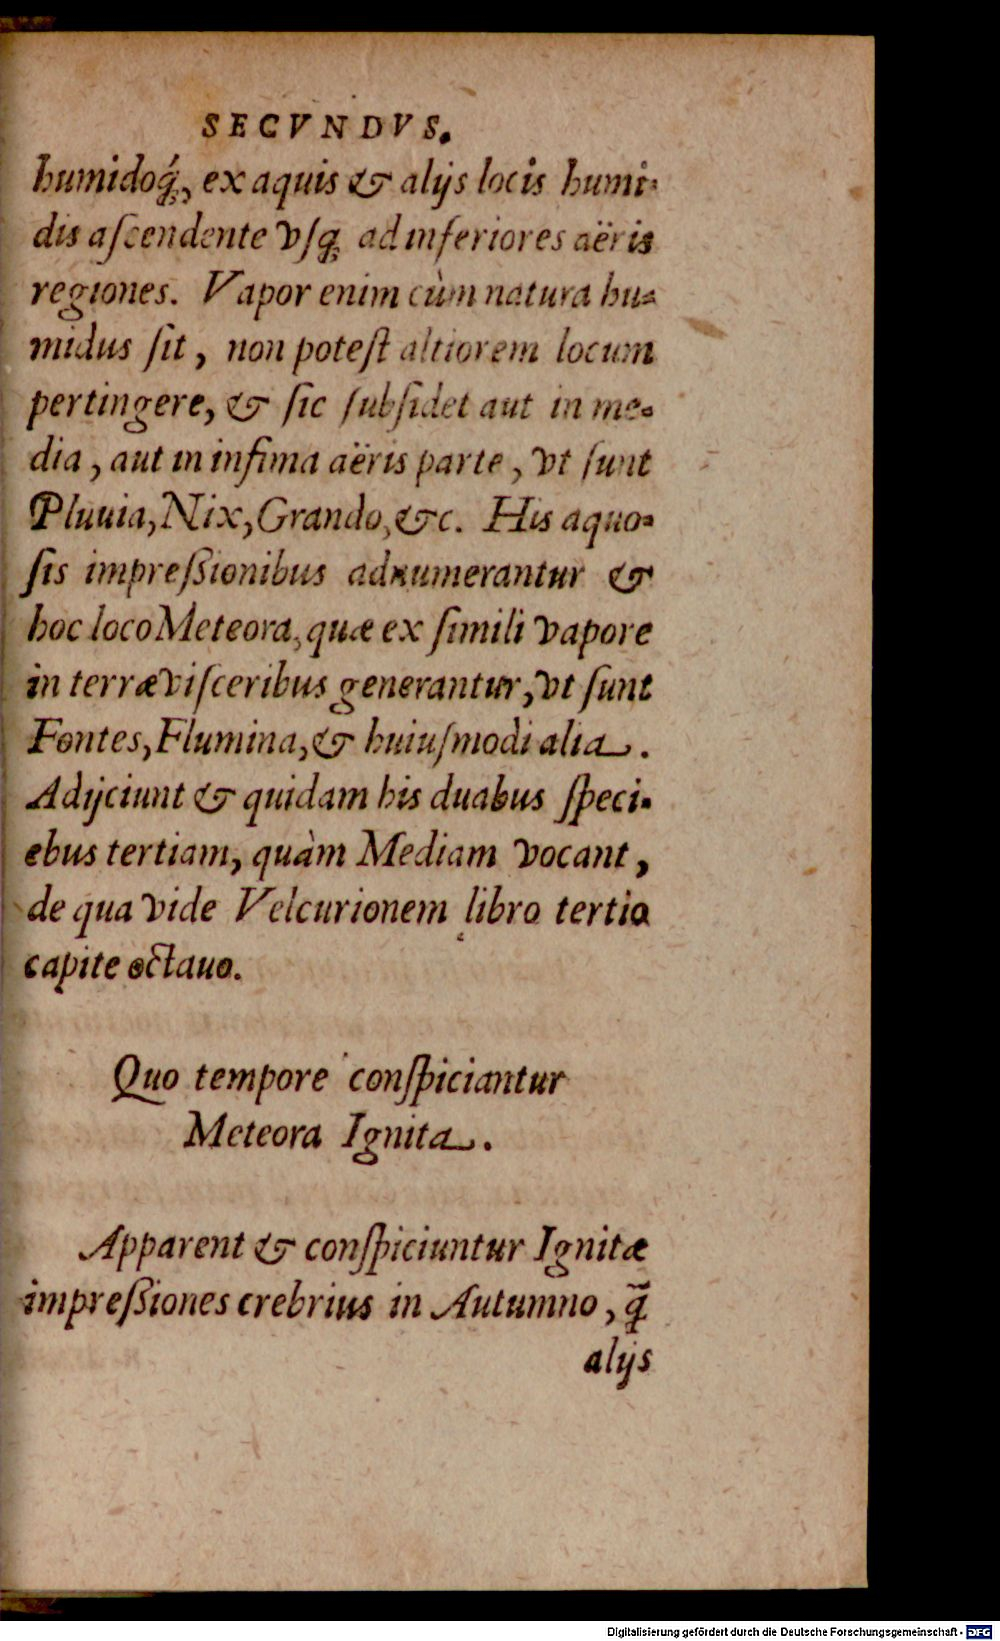 SECVNDVS.
humidoq́;, ex aquis & alijs locis humi-
dis aſcendente vſq; ad inferiores aëris
regiones. Vapor enim cùm natura hu-
midus ſit, non poteſt altiorem locum
pertingere, & ſic ſubſidet aut in me-
dia, aut in infima aëris parte, vt ſunt
Pluuia, Nix, Grando, &c. His aquo-
ſis impreßionibus adnumerantur &
hoc loco Meteora, quæ ex ſimili vapore
in terræ viſceribus generantur, vt ſunt
Fontes, Flumina, & huiuſmodi alia.
Adijciunt & quidam his duabus ſpeci-
ebus tertiam, quàm Mediam vocant,
de qua vide Velcurionem libro tertio
capite octauo.
Quo tempore conſpiciantur
Meteora Ignita.
Apparent & conſpiciuntur Ignitæ
impreßiones crebrius in Autumno, q̃
alijs
Digitalisierung gefördert durch die Deutsche Forschungsgemeinschaft - DFG